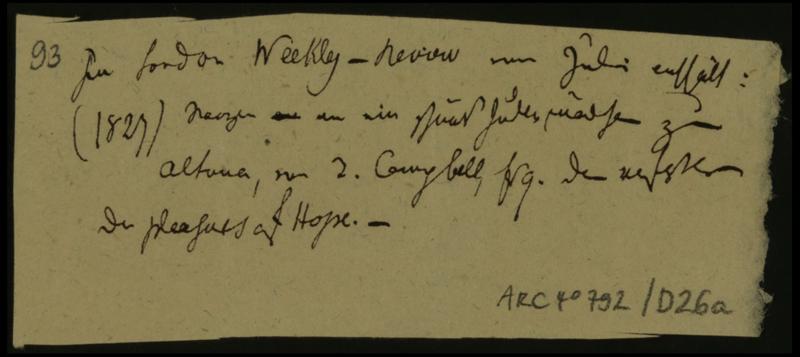 93
Im London Weekly-Review vom Juli enthält:
(1827) an ein Judenmädchen zu
Altona, von T. Campbell, d. Verfasser
der pleasures of Hope. –
ARC 4° 792 / D26a